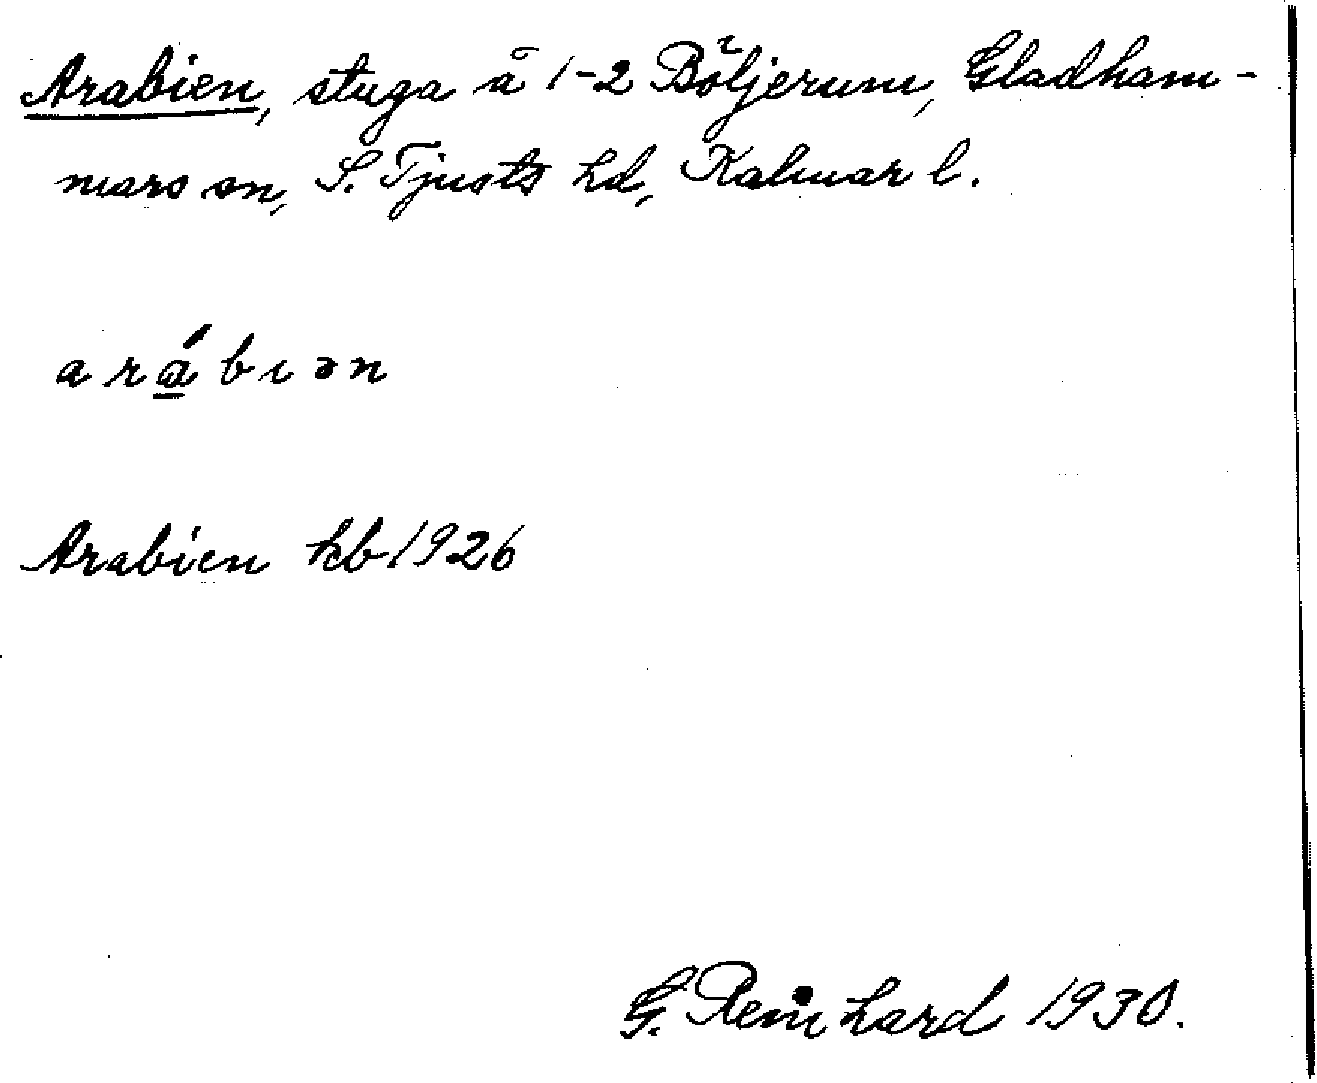 Arabien, stuga å 1-2 Böljerum, Gladham-
mars sn, S. Tjusts hd, Kalmar l.
ará̱bıən
Arabien kb 1926
G. Reinhard 1930.